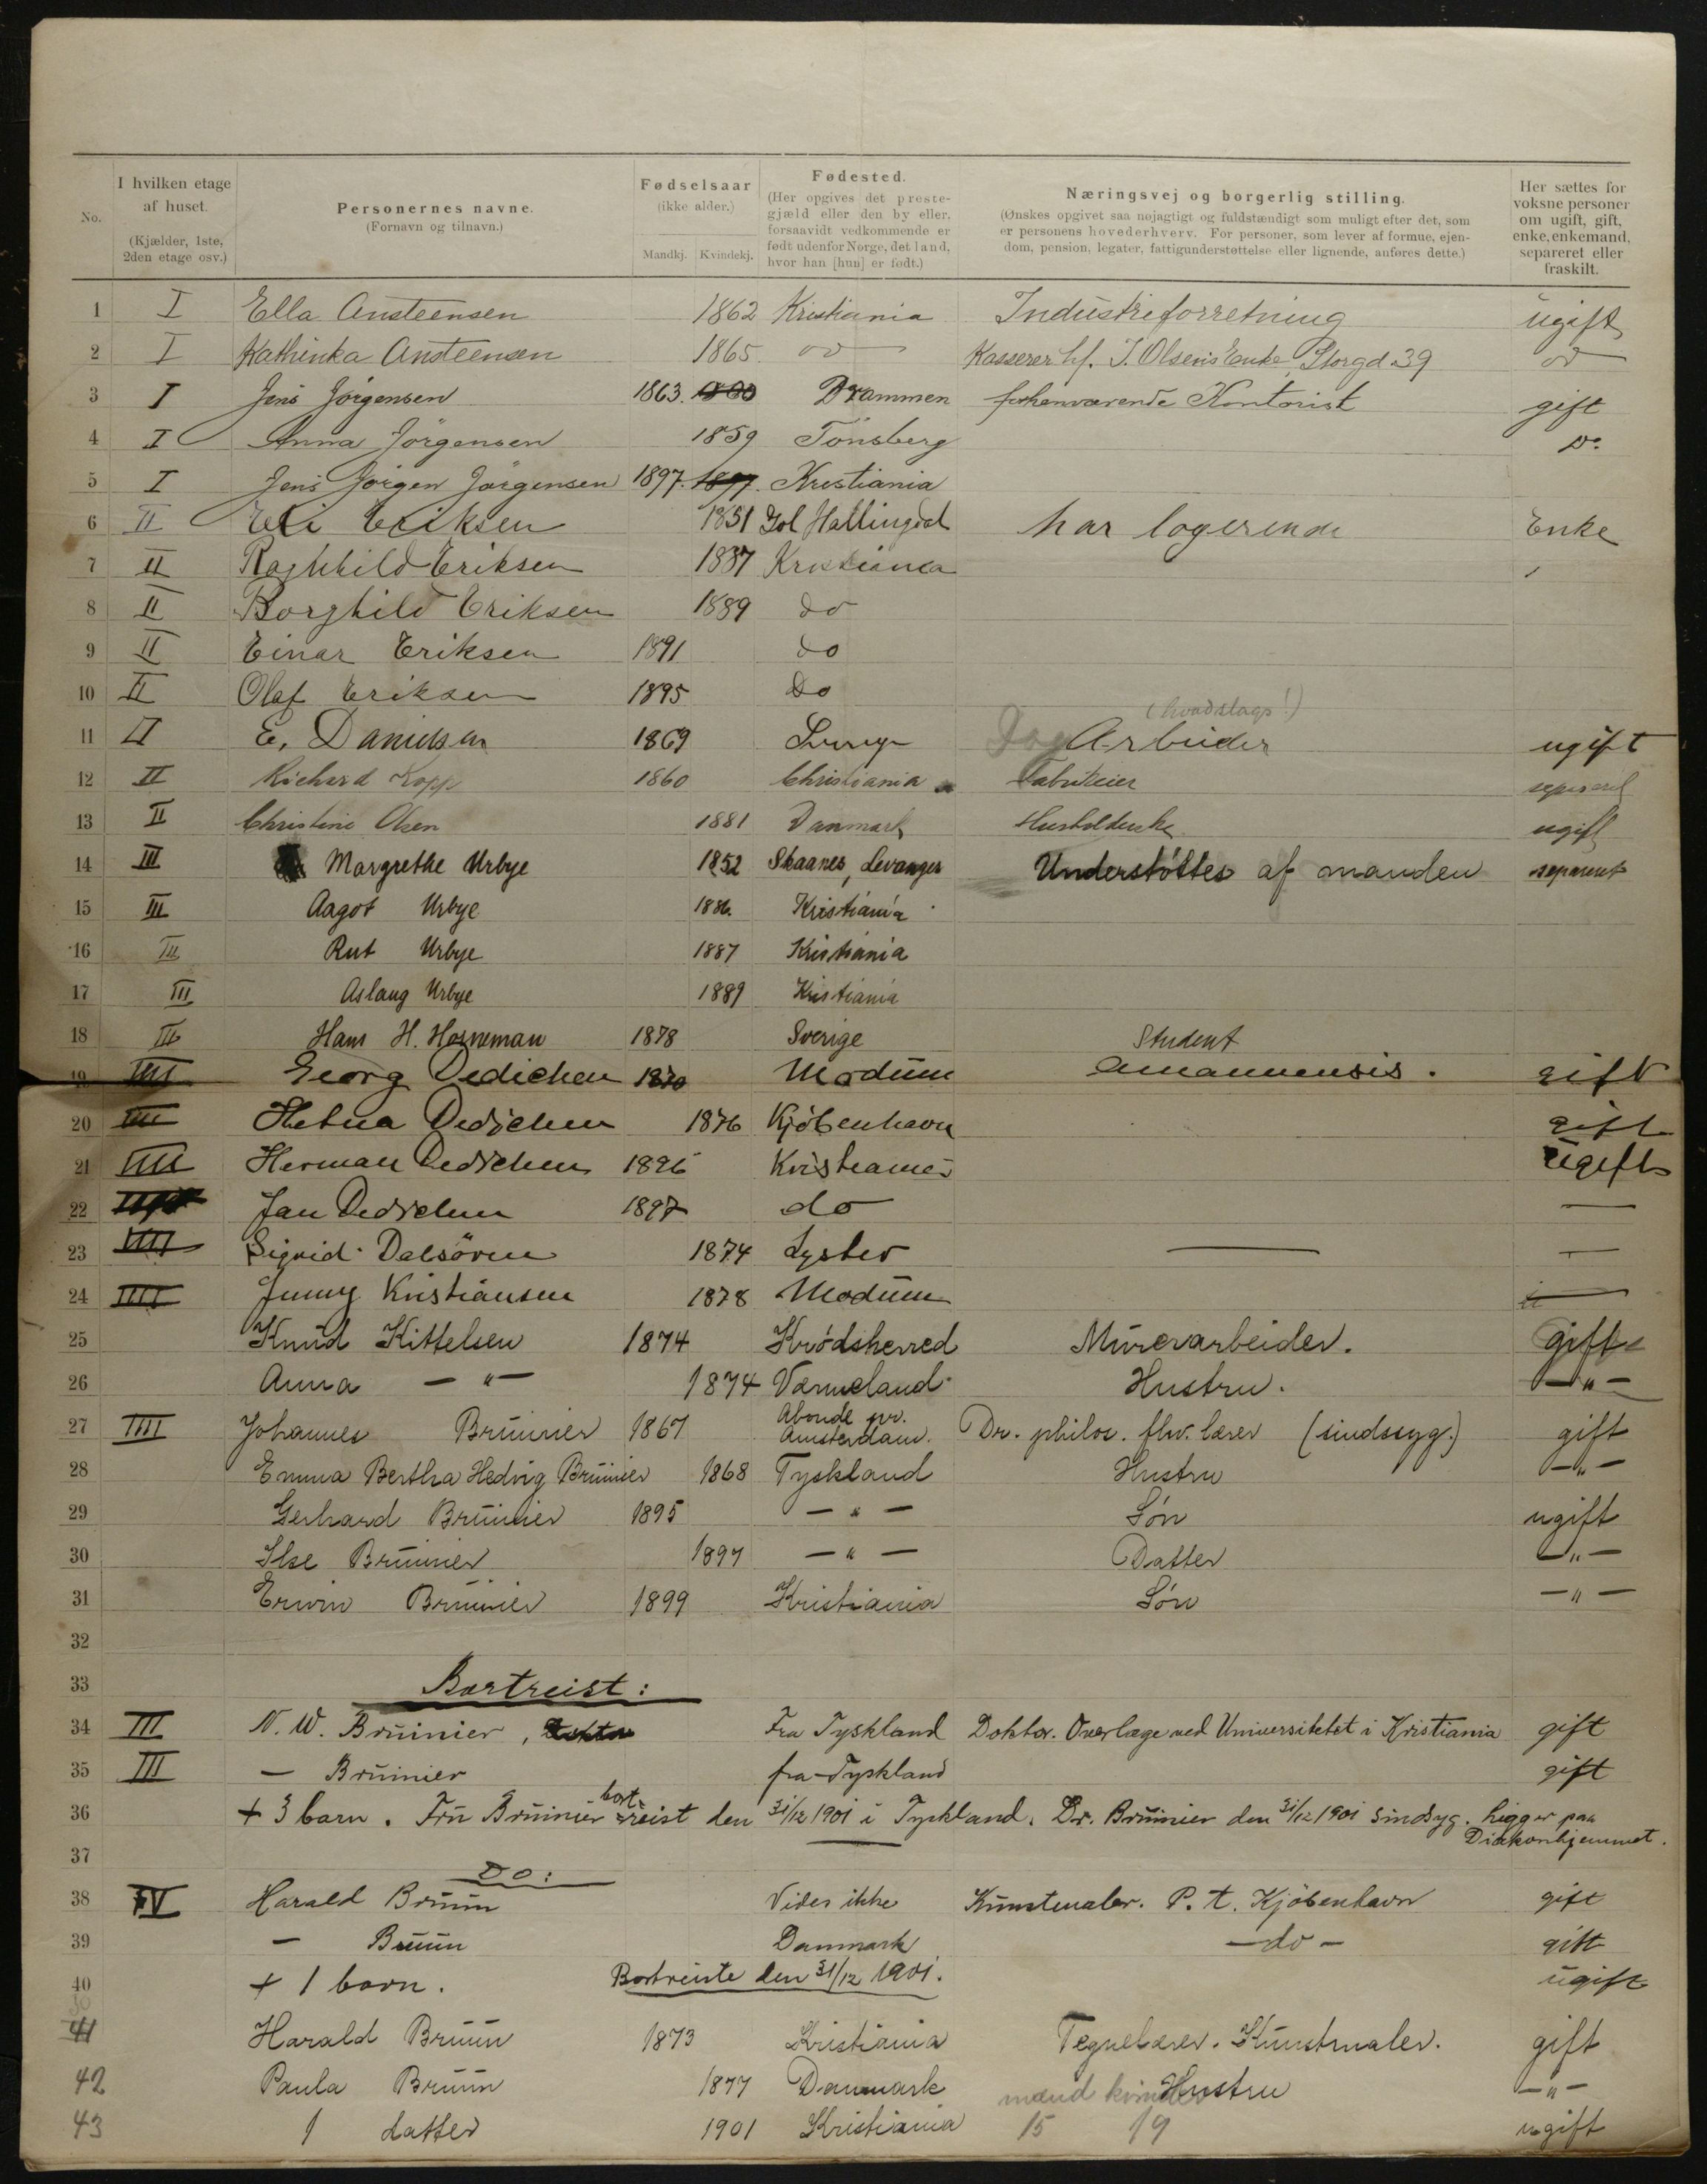 No.
I hvilken etage af huset.
(Kjælder, 1ste, 2den etage osv.)
Personernes navne.
(Fornavn og tilnavn.)
Fødselsaar
(ikke alder.)
Mandkj. Kvindekj.
Fødested.
(Her opgives det prestegjæld eller den by eller, forsaavidt vedkommende er født udenfor Norge, det land, hvor han [hun] er født.)
Næringsvej og borgerlig stilling.
(Ønskes opgivet saa nøjagtigt og fuldstændigt som muligt efter det, som er personens hovederhverv. For personer, som lever af formue, ejendom, pension, legater, fattigunderstøttelse eller lignende, anføres dette.)
Her sættes for voksne personer om ugift, gift, enke, enkemand, separeret eller fraskilt.
1 I Ella Ansteensen 1862 Kristiania Industriforretning ugift
2 I Kathinka Ansteensen 1865 do Kasserer hf. J. Olsens Enke, Storgd 39 do
3 I Jens Jørgensen 1863. Drammen forhenværende Kontorist gift
4 I Anna Jörgensen 1859 Tönsberg Do.
5 I Jens Jörgen Jörgensen 1897. 1897. Kristiania
6 II Eli Eriksen 1851 Gol Hallingdal har logerende Enke
7 II Raghhild Eriksen 1887 Kristiania
8 II Borghild Eriksen 1889 do
9 II Einar Eriksen 1891 do
10 II Olaf Eriksen 1895 Do
(hvadslags!)
11 II E. Danielsen 1869 Dag Arbeider ugift
12 II Richard Kopp 1860 Christiania Fabrikeier separeret
13 II Christine Olsen 1881 Danmark Husholderske ugift
14 III Margrethe Urbye 1852 Skaanes, Levanger Understøttes af manden separeret
15 III Aagot Urbye 1886. Kristiania
16 III Rut Urbye 1887 Kristiania
17 III Aslaug Urbye 1889 Kristiania
18 III Hans H. Horneman 1878 Sverige Student
19 IIII Georg Dedichen 1870 Modum amanuensis. gift
20 IIII Dedichen 1876 Kjøbenhavn gift
21 IIII Herman Dedichen 1896 Kristiania ugift
22 Jan Dedichen 1897 do —
23 IIII Sigrid Dalsören 1874 Lyster — —
24 IIII Jenny Kristiansen 1878 Modum —
25 Knud Kittelsen 1874 Krødsherred Murerarbeider. gift
26 Anna — " — 1874 Værmeland Hustru. — " —
27 IIII Johannes Bruinier 1867 Abonde pr. Amsterdam. Dr. philos. fhv. lærer (sindssyg.) gift
28 Emma Bertha Hedvig Bruinier 1868 Tyskland Hustru — " —
29 Gerhard Bruinier 1895 — " — Søn ugift
30 Ilse Bruinier 1897 — " — Datter — " —
31 Erwin Bruinier 1899 Kristiania Søn — " —
32
33 Bortreist:
34 III N. W. Bruinier, Fra Tyskland Doktor. Overlæge ved Universitetet i Kristiania gift
35 III — Bruinier fra Tyskland gift
36 + 3 barn. Fru Bruinier bortreist den 31/12 1901 i Tyskland. Dr. Bruinier den 31/12 1901 sindsyg. Ligger paa Diakonhjemmet.
37 Do:
38 IV Harald Bruun Vides ikke Kunstmaler. P. t. Kjöbenhavn gift
39 — Bruun Danmark — do — gift
40 + 1 barn. Bortreiste den 31/12 1901. ugift
41 Harald Bruun 1873 Kristiania Tegnelærer. Kunstmaler. gift
42 Paula Bruun 1877 Danmark mænd kvinder Hustru — " —
43 1 datter 1901 Kristiania 15 19 ugift